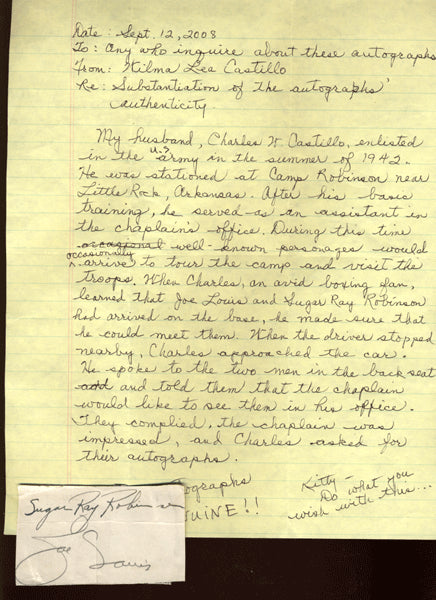 Date: Sept. 12, 2008
To: Any who inquire about these autographs
From: Wilma Lea Castillo
Re: Substantiation of the autographs'
authenticity.
My husband, Charles W. Castillo, enlisted
in the U.S. army in the summer of 1942.
He was stationed at Camp Robinson near
Little Rock, Arkansas. After his basic
training, he served as an assistant in
the chaplain's office. During this time
occasionally well-known personages would
arrive to tour the camp and visit the
troops. When Charles, an avid boxing fan,
learned that Joe Louis and Sugar Ray Robinson
had arrived on the base, he made sure that
he could meet them. When the driver stopped
nearby, Charles approached the car.
He spoke to the two men in the back seat
and and told them that the chaplain
would like to see them in his office.
They complied, the chaplain was
impressed, and Charles asked for
their autographs.
ographs
UINE!!
Kitty –
Do what you
wish with this...
Sugar Ray Robinson
Joe Louis